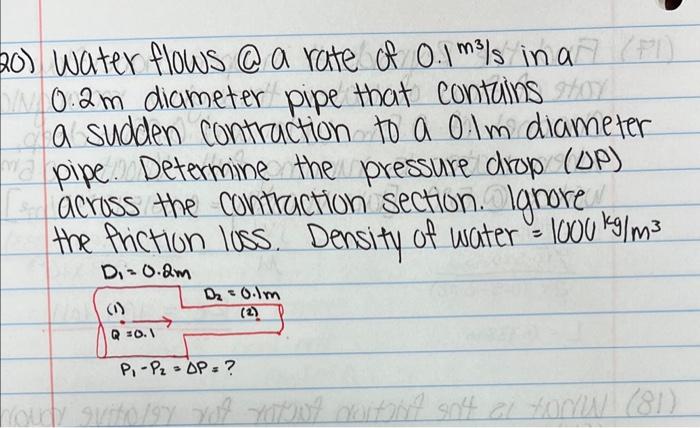 20) Water flows @ a rate of 0.1 m³/s in a
0.2m diameter pipe that contains
a sudden contraction to a 0.1m diameter
pipe. Determine the pressure drop (ΔP)
across the contraction section. Ignore
the friction loss. Density of water = 1000 kg/m³
D₁ = 0.2m
D₂ = 0.1m
(1)
(2)
Q = 0.1
P₁ - P₂ = ΔP = ?